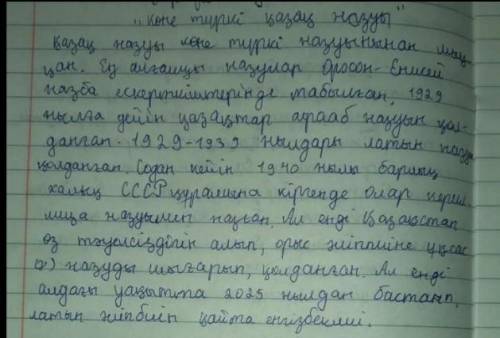 "көне түркі қазақ жазуы"
Қазақ жазуы көне түркі жазуынынан шық
қан. Ең алғашқы жазулар Орхон-Енисей
жазба ескерткіштерінде табылған, 1929
жылға дейін қазақтар арааб жазуын қол-
данған. 1929-1939 жылдары латын жазуы
қолданған. Содан кейін 1940 жылы барлық
халық СССР құрамына кіргенде олар кирил-
лица жазуымен жазған. Ал енді Қазақстан
өз тәуелсіздігін алып, орыс әліппиіне ұқсас
жазуды шығарып, қолданған. Ал енді
алдағы уақытта 2025 жылдан бастап,
латын әліпбиін қайта енгізбекші.